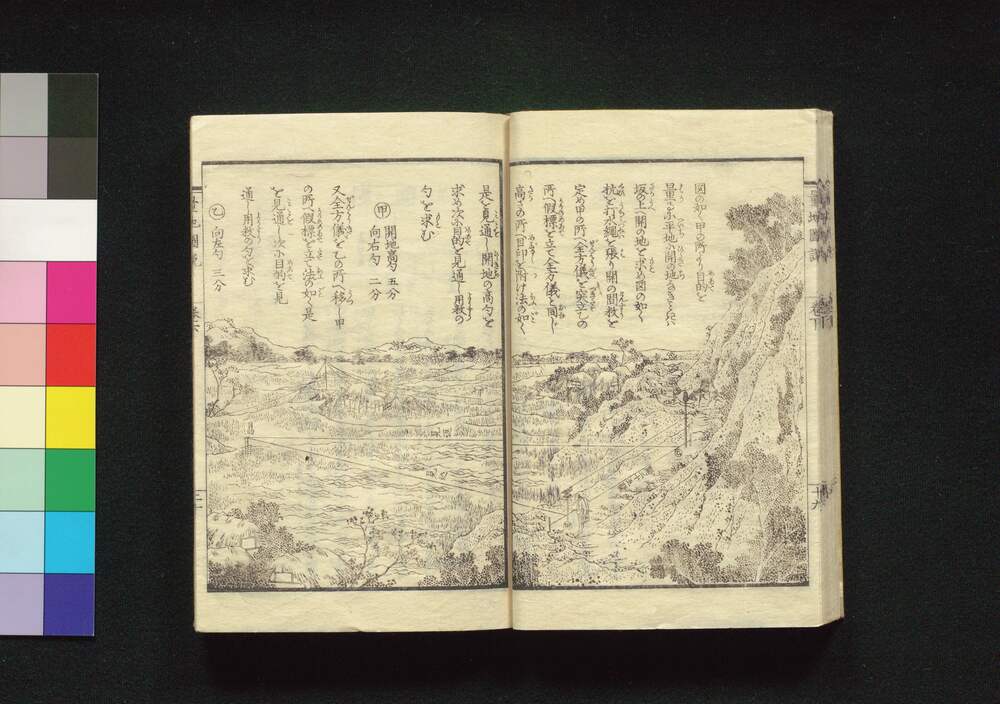 図の如く甲の所より目的を
量るに平地
坂の上に開の地を求め図の如く
杭を打水縄を張り開の間数を
定め甲の所へ全方儀を突立乙の
所へ假標を立て全方儀と同じ
高さの所へ目印を附け法の如く
是を見通し開地の高勺を
求め次目的を見通し用数の
勺を求む
甲 開地高勺 五分
向右勺 二分
又全方儀を乙の所へ移し甲
の所へ假標を立て法の如く是
を見通し次小目的を見
通し用数の勺を求む
乙 向左勺 三分